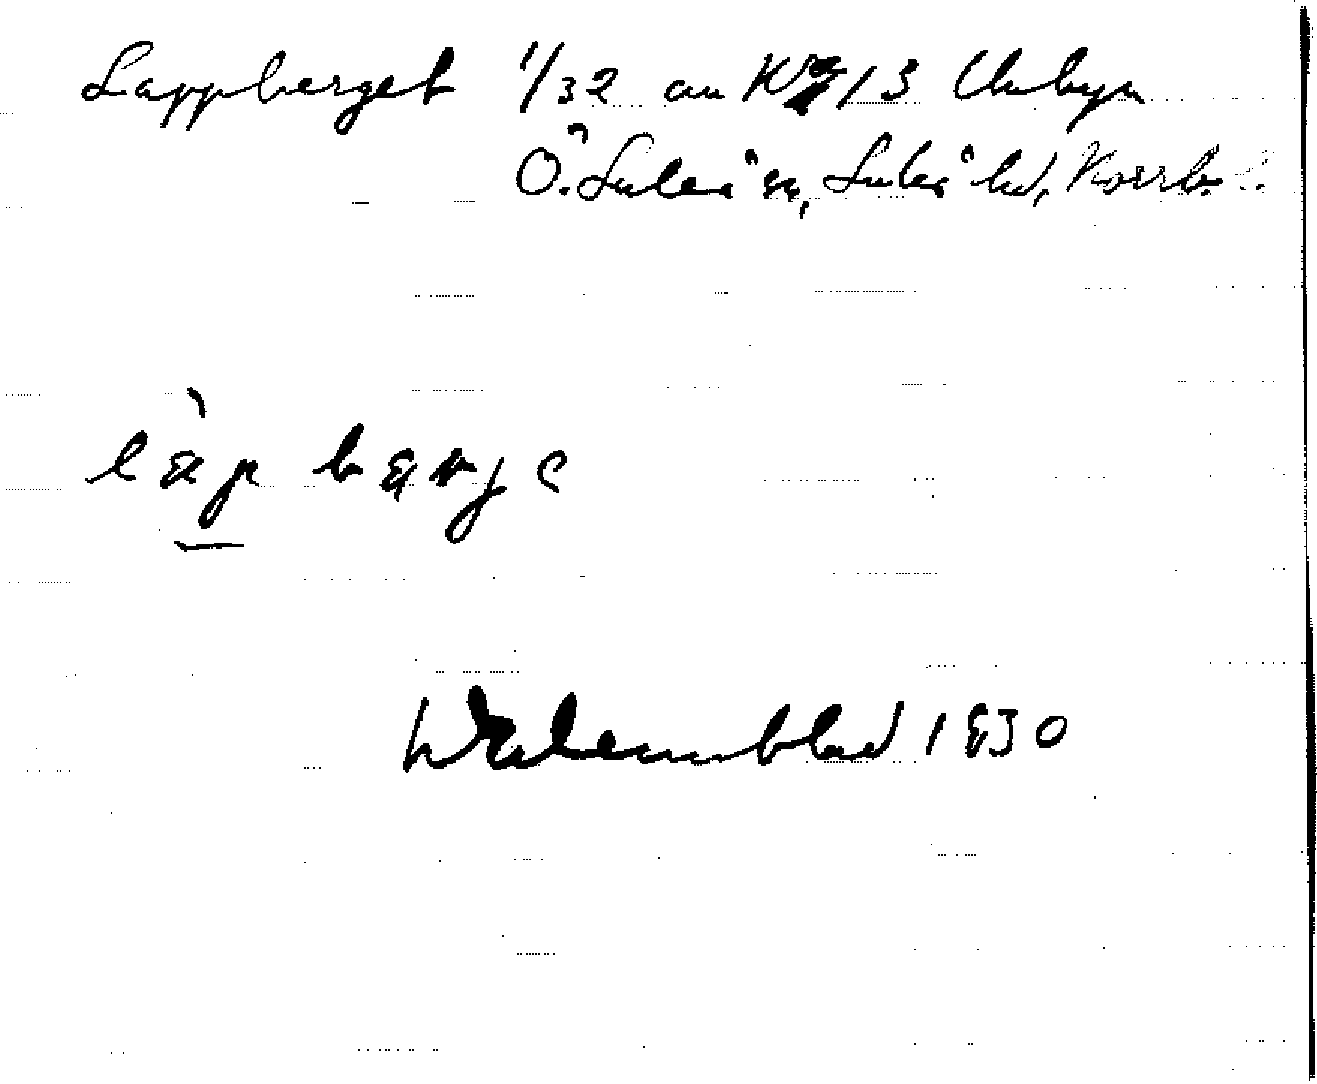 Lappberget 1/32 au Kr 13 Unbyn
Ö. Luleå sn, Luleå tld, Norrb. l.
làp bärje
Wahlemblad 1930